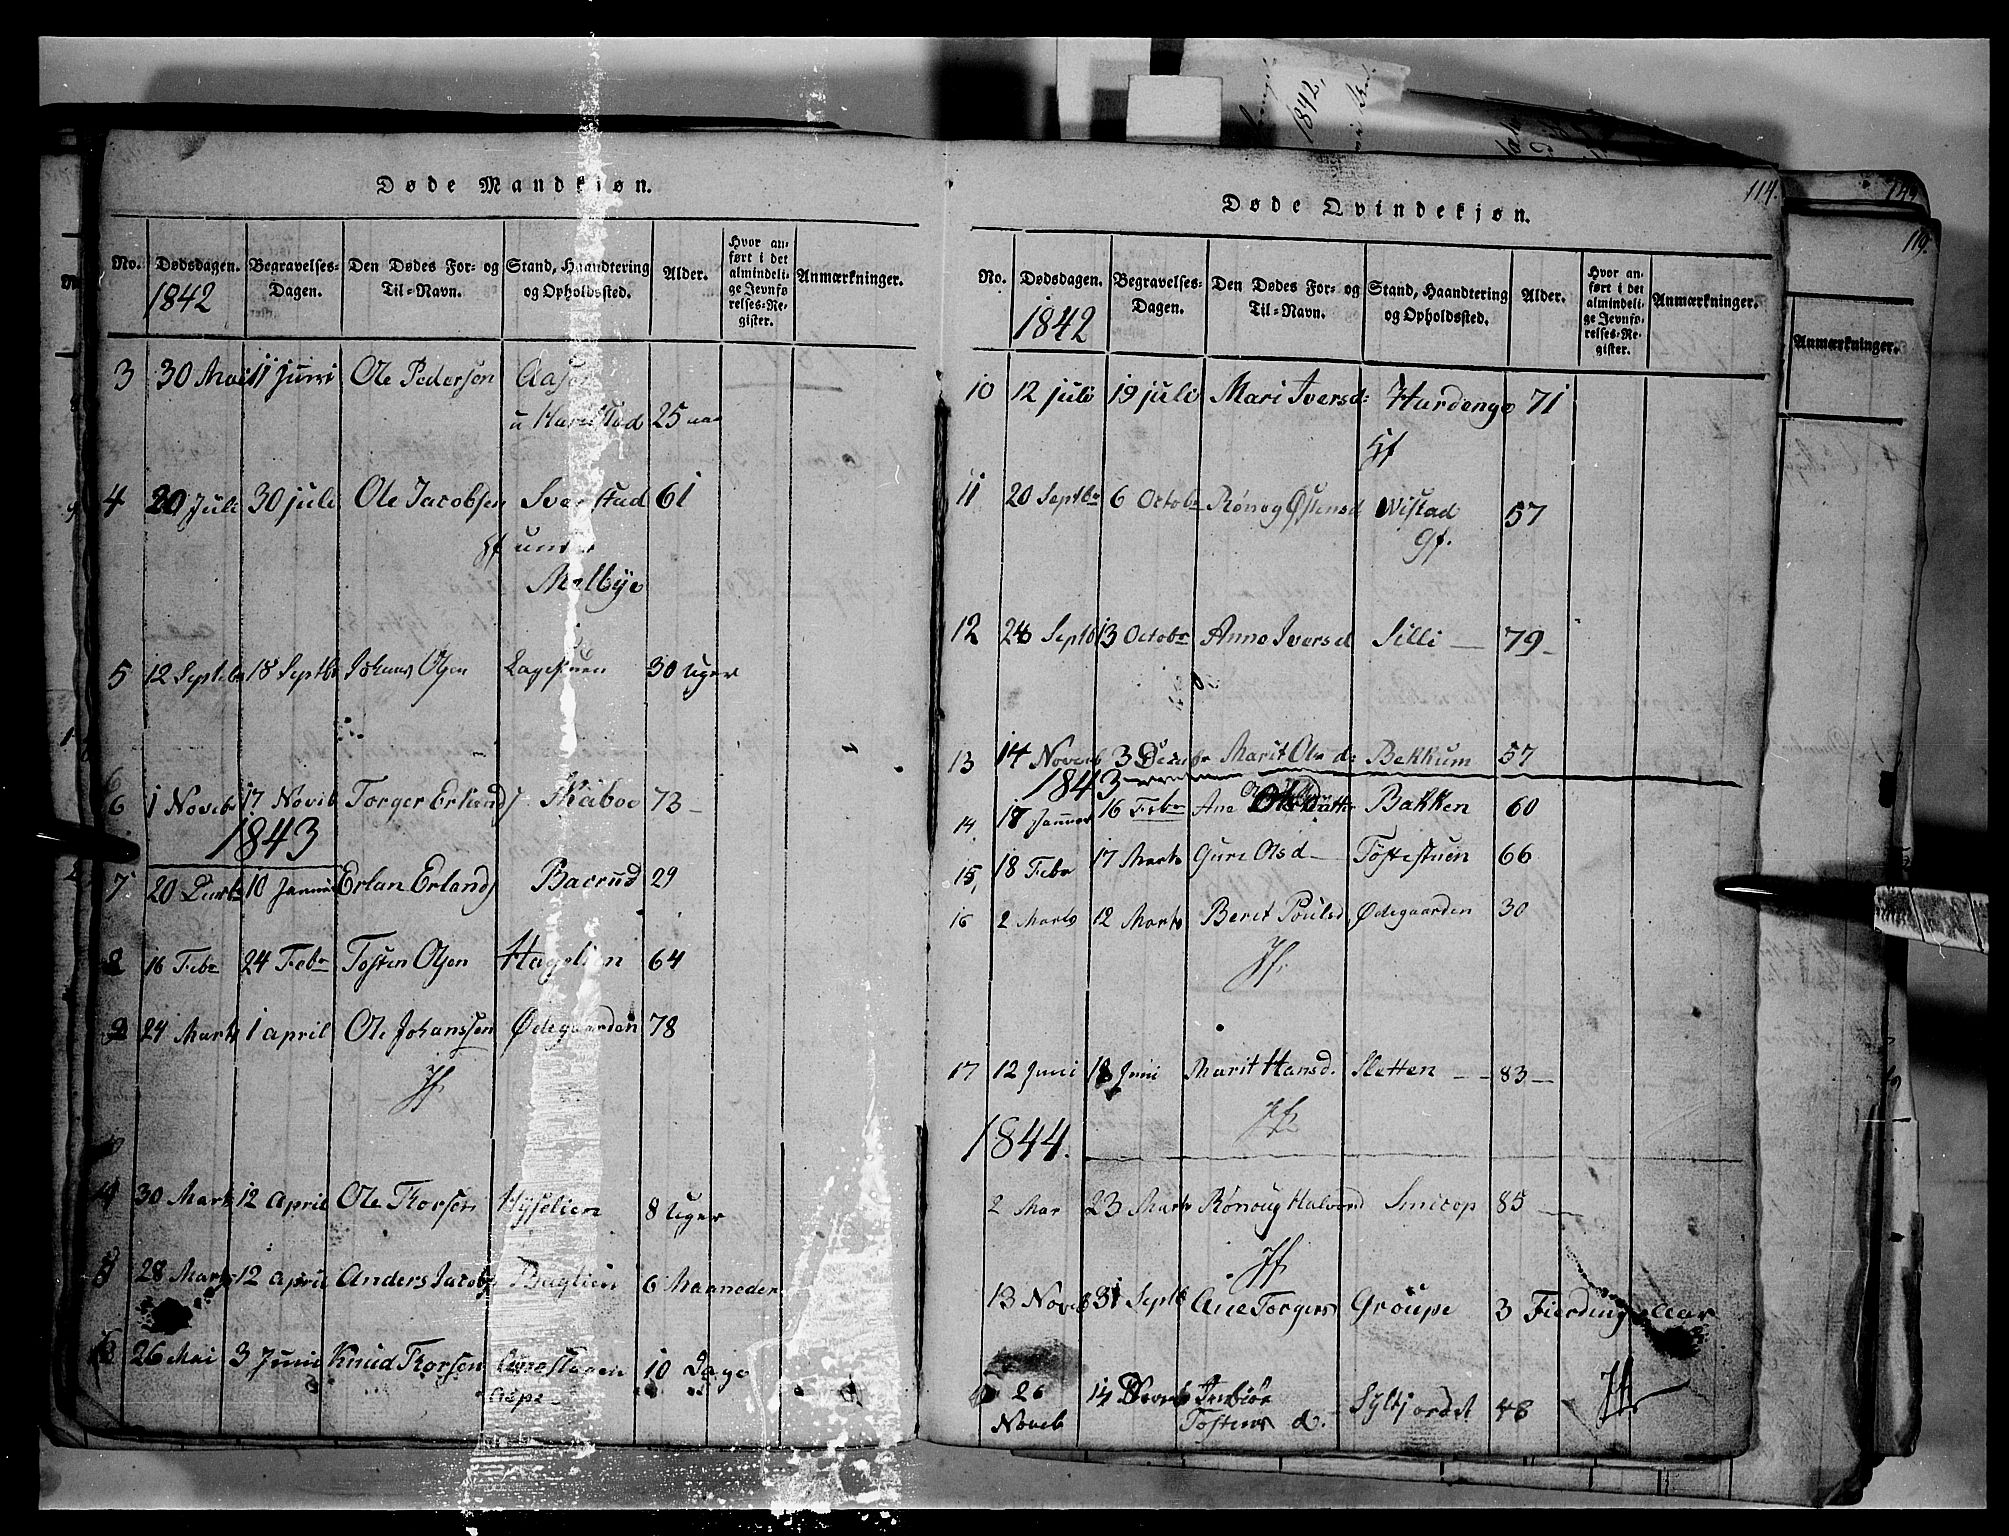 Døde Mandkjøn.
No. Dødsdagen. Begravelses-Dagen. Den Dødes For- og Til-Navn. Stand, Haandtering og Opholdssted. Alder. Hvor anført i det almindelige Jevnførelses-Register. Anmærkninger.
1842
3 30 Mai 11 Juni Ole Pedersen
u 25 aar
4 20 Juli 30 juli Ole Jacobsen Sverstad 61
gf under
Melbye
5 12 Septebr 18 Septbr Johans Olsen 30 Uger
6 1 Novebr 17 Novib Torger Erlends Skaboe 73
1843
7 20 10 Erlan Erlands Bacrud 29
16 Febr 24 Febr Tosten Olsen Hagelien 64
24 Marts 1 april Ole Johanssen Ødegaarden 78
Jf
30 Marts 12 April Ole Thorsen 8 Uger
28 Marts 12 April Anders Jacobs Baglien 6 Maaneder
26 Mai 3 Junii Knud Thorsen 10 Dage
114.
Døde Qvindekjøn.
No. Dødsdagen. Begravelses-Dagen. Den Dødes For- og Til-Navn. Stand, Haandtering og Opholdssted. Alder. Hvor anført i det almindelige Jevnførelses-Register. Anmærkninger.
1842
10 12 juli 19 juli Mari Iversd: 71
gf
11 20 Septbr 6 Octobr Rønog Østensd Wistad 57
gf.
12 Septb 13 Octobr Anne Iversd Silli 79
13 14 Noveb 3 Decebr Marit Ols d: Bekkum 57
1843
14. 17 16 Febr Ane Bakken 60
15, 18 Febr 17 Marts Guri Olsd Tostestuen 66
16 2 Marts 12 Marts Berit Poulsd Ødegaarden 30
Jf.
17 12 Juni 18 Juni Marit Hansd. Sletten 83
Jf
1844.
2 Mar 23 Marts Rønoug Halvord 85
Jf
13 Noveb 31 Septb Ane Torgers Groupe 3 Fierding aar
26 14 Inbiør Sylfjordet 48
Noveb Tostens d. Jf
119.
Anmærkninger.